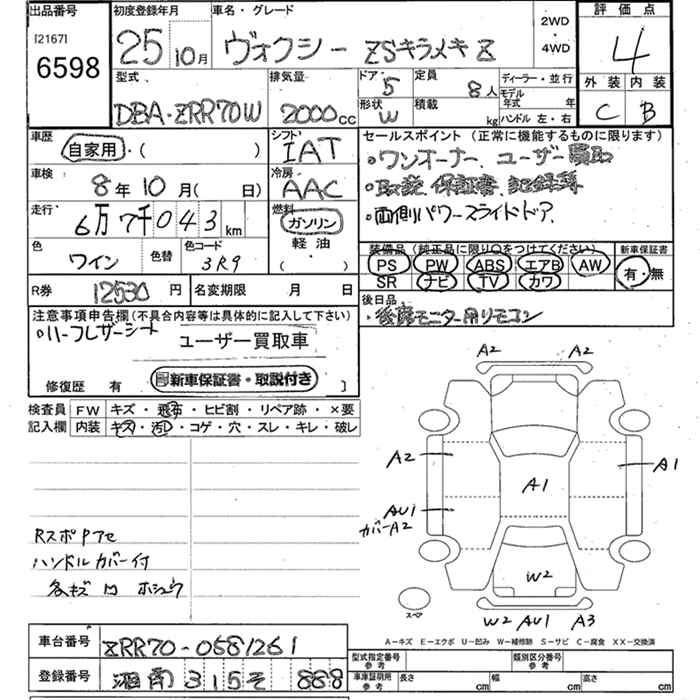 出品番号 初度登録年月 車名・グレード 評価点
[2167] 6598 25 10月 ヴォクシー ZSキラメキZ 2WD・4WD 4
外装 内装
C B
型式 排気量 ドア 定員 ディーラー・並行
DBA-ZRR70W 2000cc 5 8人 モデル年式 年
形状 積載 ハンドル 左・右
W kg
車歴 シフト セールスポイント (正常に機能するものに限ります)
自家用・( ) IAT ・ワンオーナー、ユーザー買取
車検 冷房 ・取説、保証書、記録簿
8年10月( 日) AAC ・両側パワースライドドア
走行 燃料
6万7千043km ガソリン
軽油
( )
色 色替 色コード 装備品 (純正品に限り○をつけてください) 新車保証書
ワイン 3R9 PS PW ABS エアB AW 有・無
SR ナビ TV カワ
R券 12530円 名変期限 月 日 後日品
・後席モニター用リモコン
注意事項申告欄(不具合内容等は具体的に記入して下さい)
・ハーフレザーシート ユーザー買取車
修復歴 有 新車保証書・取説付き ]
検査員 FW キズ・飛石・ヒビ割・リペア跡・×要
記入欄 内装 キズ・汚レ・コゲ・穴・スレ・キレ・破レ
A2 A2
A2 A1
A1
AU1
カバーA2
W2
スペア
W2 AU1 A3
RスポPアセ
ハンドルカバー付
各キズ凹ホシュウ
A-キズ E-エクボ U-凹み W-補修跡 S-サビ C-腐食 XX-交換済
車台番号 ZRR70-0581261
登録番号 湘南 315 そ 888
型式指定番号 参考 類別区分番号 参考
車庫証明用 参考 長さ cm 幅 cm 高さ cm